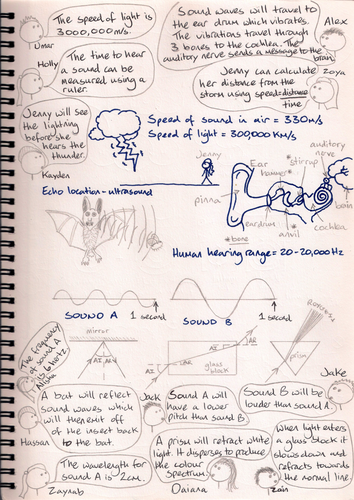 The speed of light is
3000,000m/s.
Umar
Sound waves will travel to
the ear drum which vibrates.
The vibrations travel through
3 bones to the cochlea. The
auditory nerve sends a message to the
brain.
Alex
Holly
The time to hear
a sound can be
measured using a
ruler.
Jenny can calculate
her distance from the
storm using speed=distance
time
Zoya
Jenny will see
the lightning
before she
hears the
thunder.
Kayden
Speed of sound in air = 330m/s
Speed of light = 300,000 Km/s
Jenny
Echo location - ultrasound
Ear
hammer*
*
stirrup
auditory
nerve
pinna
eardrum
*
anvil
cochlea
brain
*bone
Human hearing range = 20-20,000Hz
SOUND A
1 second
SOUND B
1 second
The frequency
of sound A
is 6 hertz
Alisha
mirror
AI
AR
AI
AR
glass
block
prism
ROYGBIV
Jake
A bat will reflect
sound waves which
will then exit off
of the insect back
to the bat.
Hassan
Jack
Sound A will
have a lower
pitch than sound B
Sound B will be
louder than sound A.
A prism will refract white
light. It disperses to produce
the colour
spectrum.
Daiana
When light enters
a glass block it
slows down and
refracts towards
the normal line.
Zak
The wavelength for
sound A is 2cm.
Zaynab